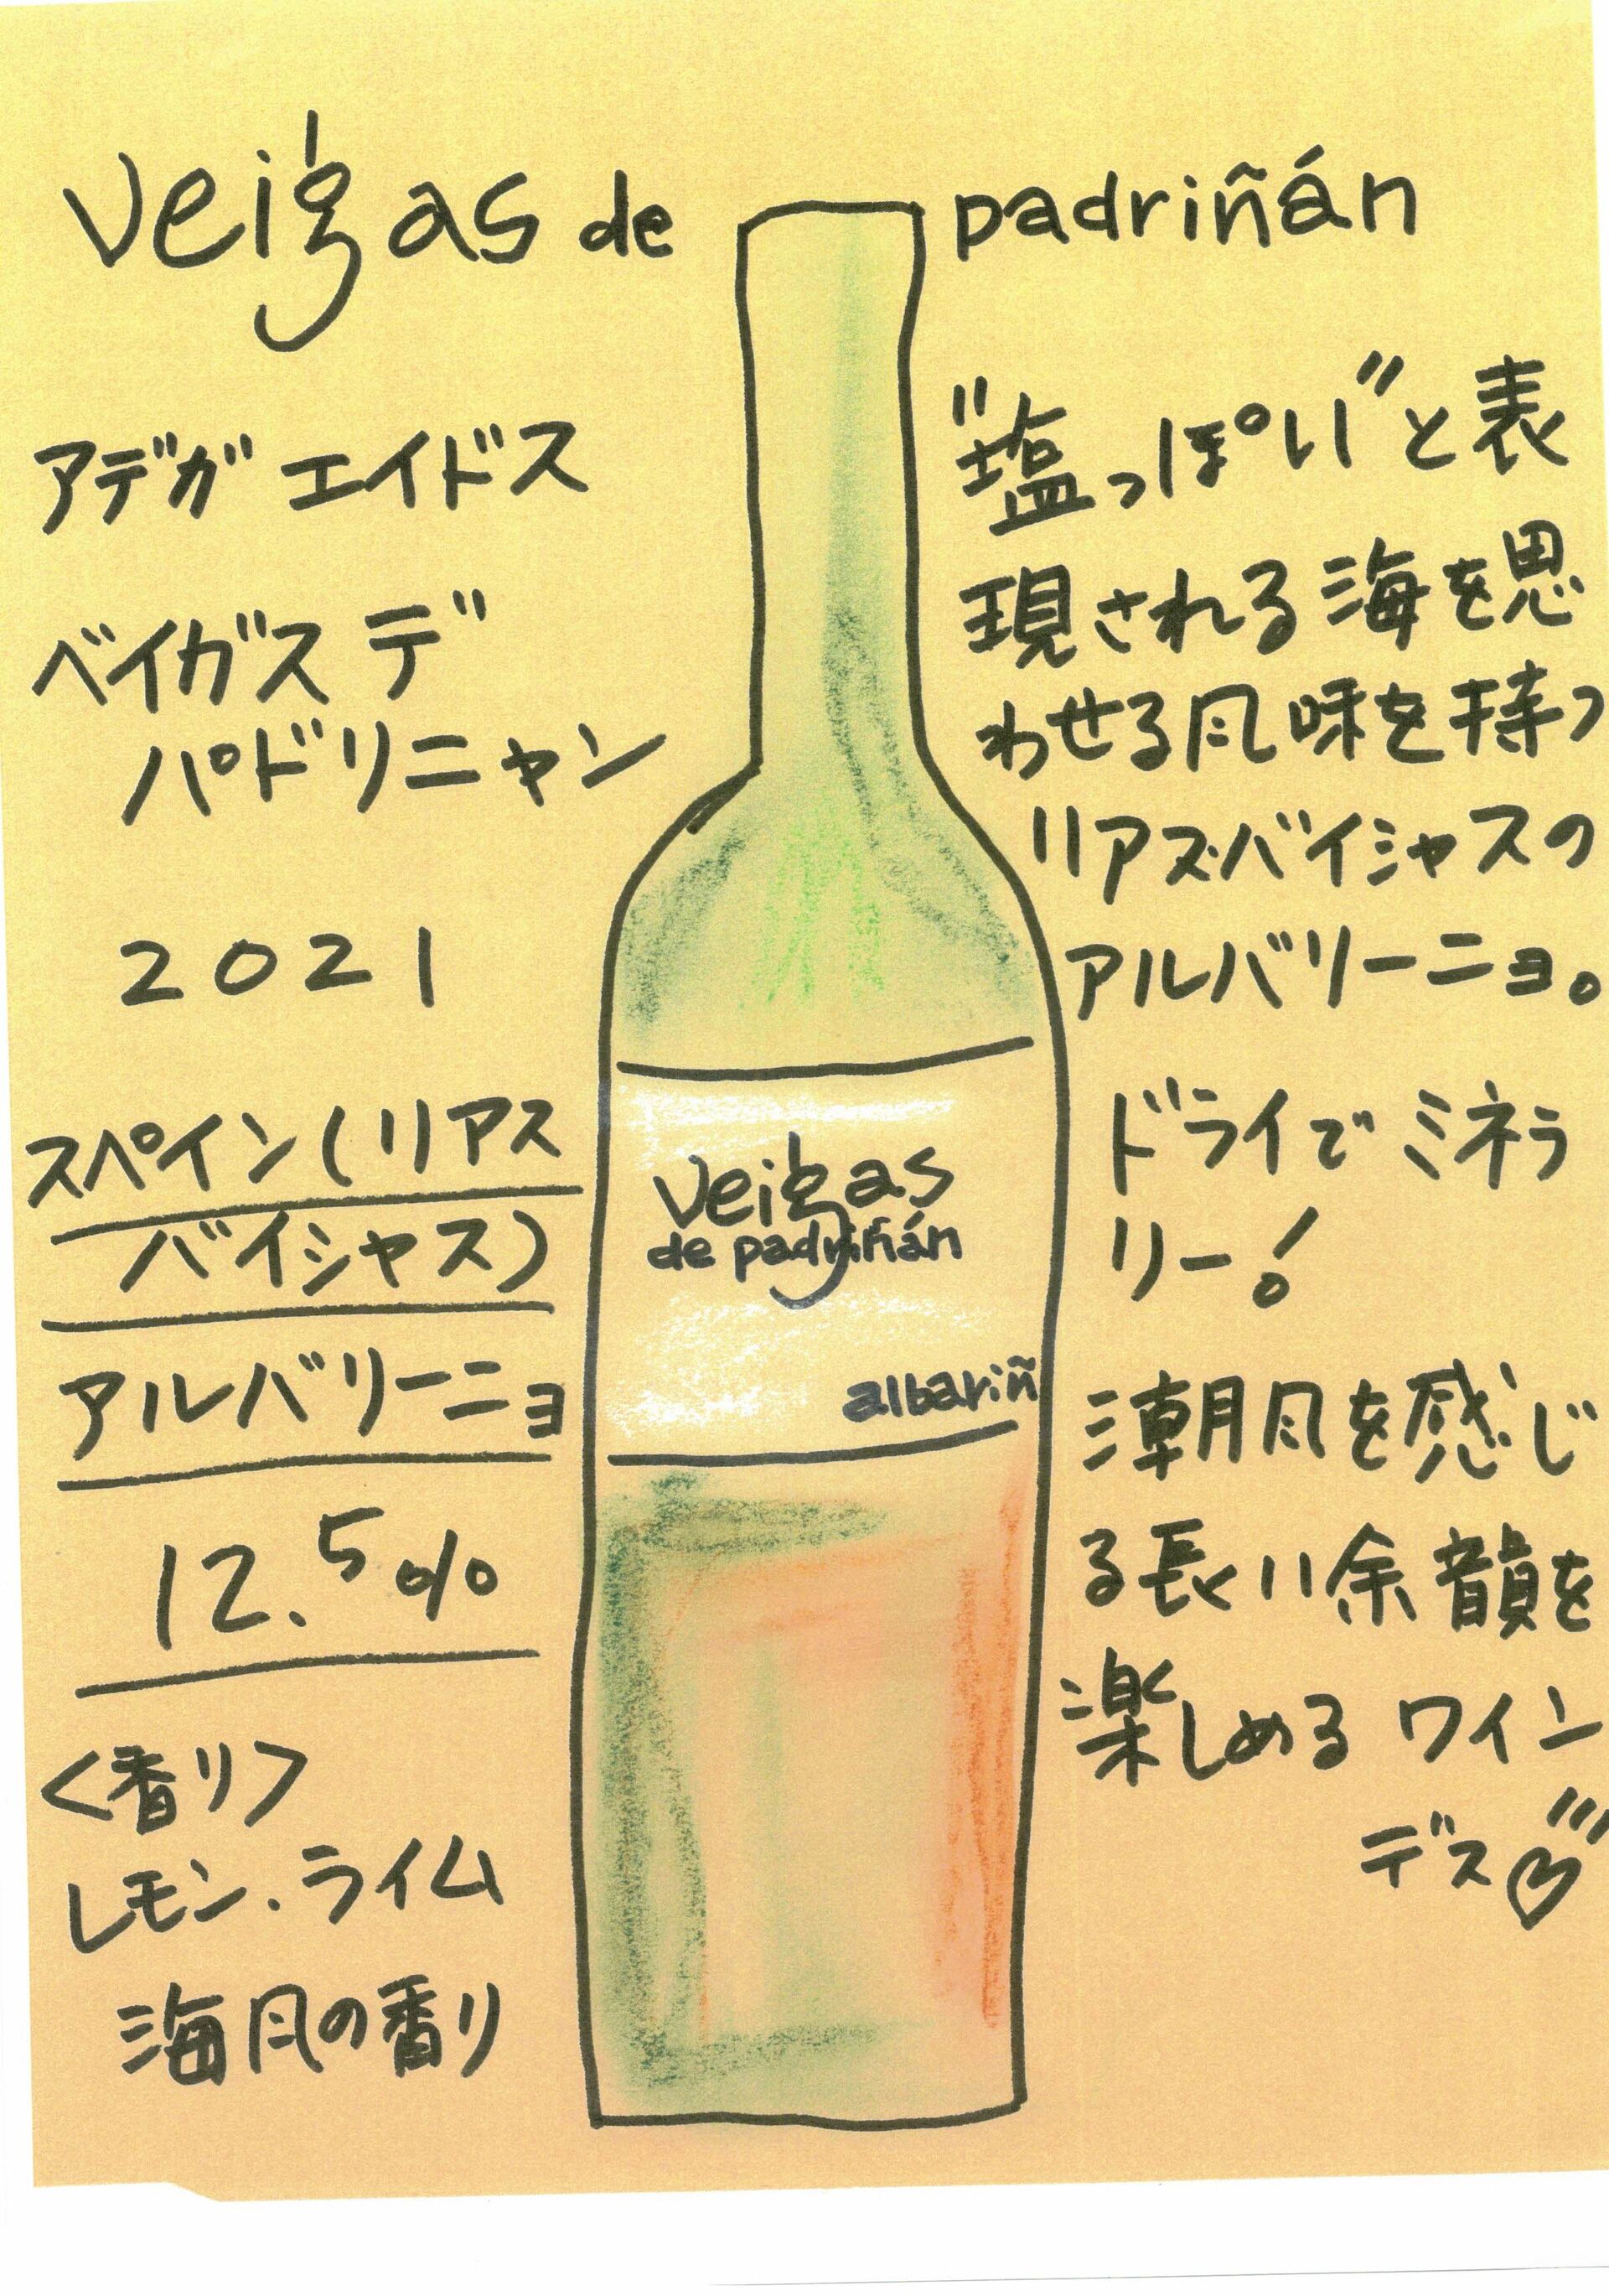 veigas de padriñán
アデガ エイドス
ベイガス デ
パドリニャン
2021
スペイン(リアス
バイシャス)
アルバリーニョ
12.5%
<香り>
レモン.ライム
海風の香り
veigas
de padriñán
albariñ
"塩っぽい"と表
現される海を思
わせる風味を持つ
リアスバイシャスの
アルバリーニョ。
ドライでミネラ
リー!
潮風を感じ
る長い余韻を
楽しめるワイン
デス♡